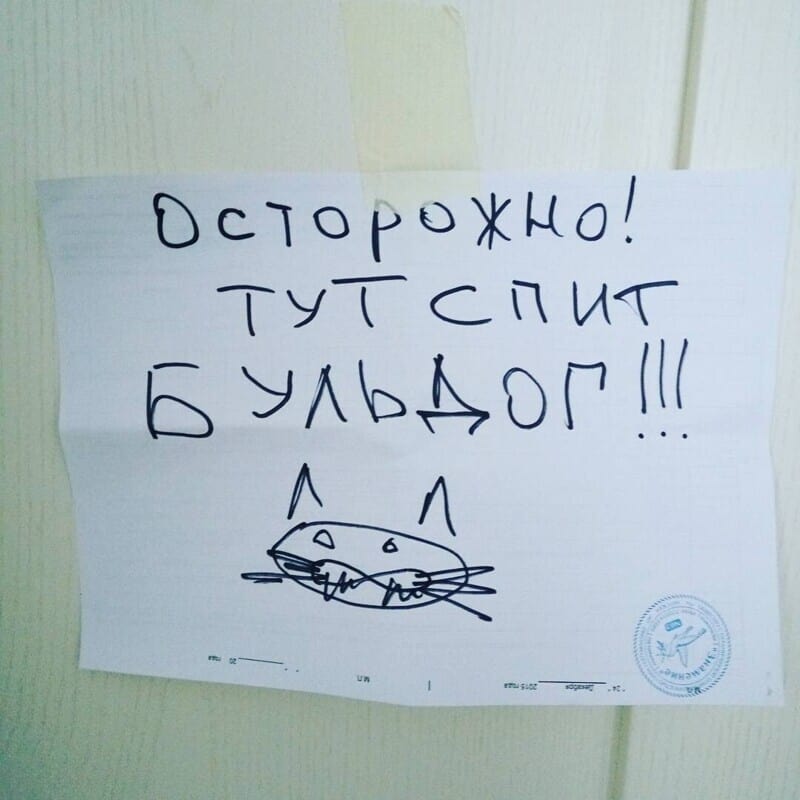 ОСТОРОЖНО!
ТУТ СПИТ
БУЛЬДОГ!!!
"24" Декабря 2015 года
М.П.
20 года
"Знамение"